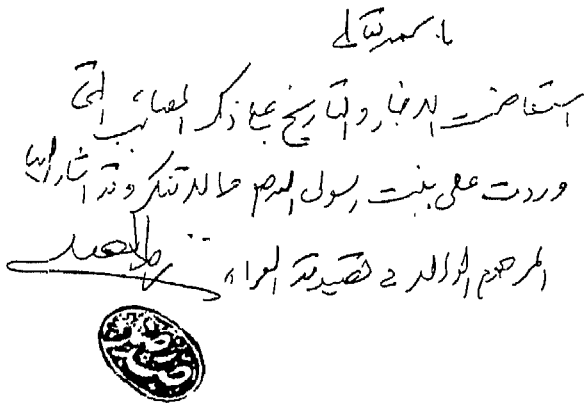 باسمه تعالى
استفاضت الأخبار والتاريخ على ذكر المصائب التي
وردت على بنت رسول الله ص مما لا تنكر وقد أشار إليها
المرحوم الوالد في قصيدته الغراء